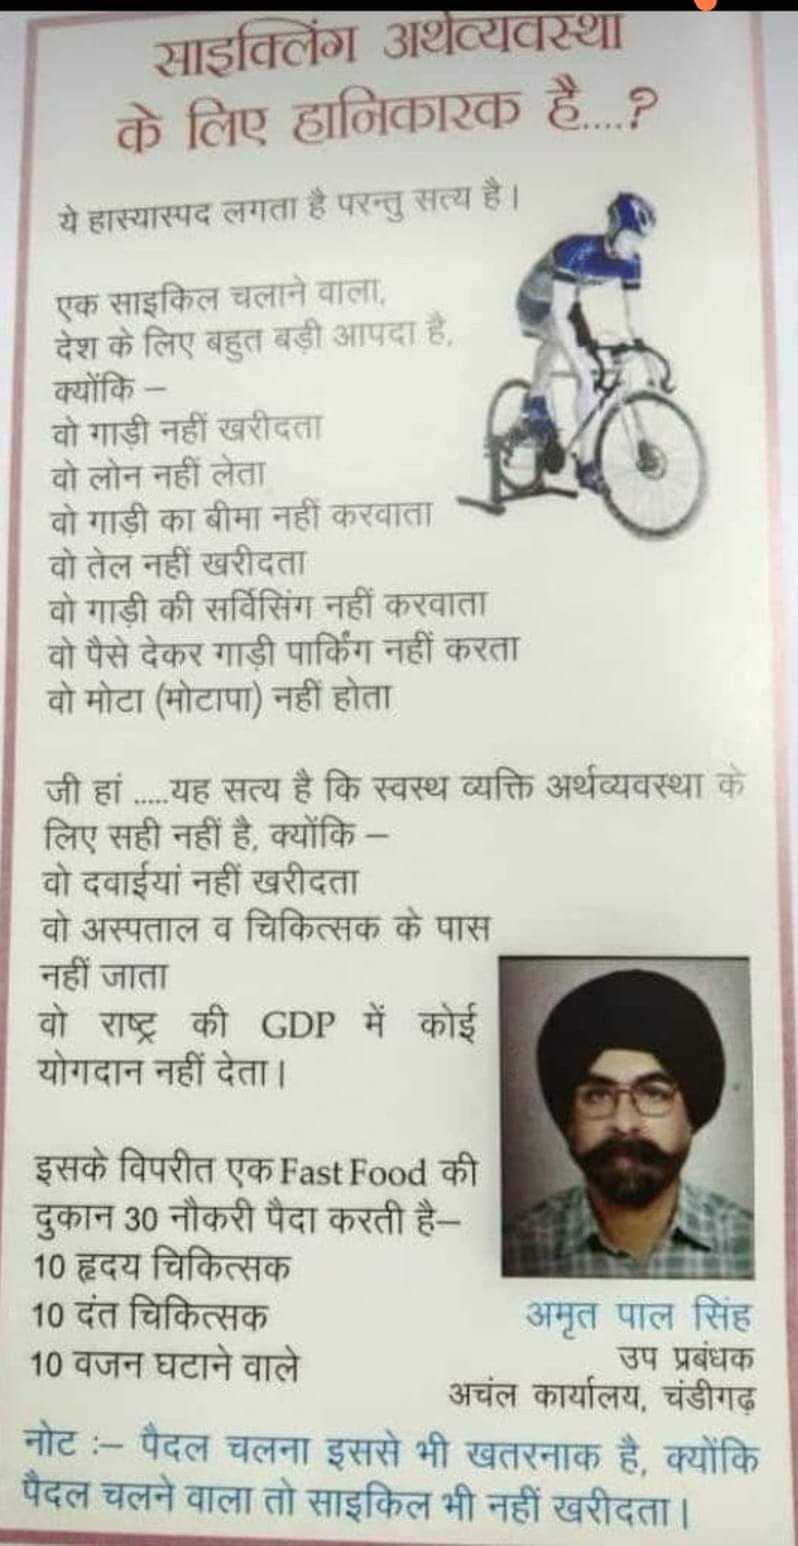 साइक्लिंग अर्थव्यवस्था
के लिए हानिकारक है....?
ये हास्यास्पद लगता है परन्तु सत्य है।
एक साइकिल चलाने वाला,
देश के लिए बहुत बड़ी आपदा है,
क्योंकि –
वो गाड़ी नहीं खरीदता
वो लोन नहीं लेता
वो गाड़ी का बीमा नहीं करवाता
वो तेल नहीं खरीदता
वो गाड़ी की सर्विसिंग नहीं करवाता
वो पैसे देकर गाड़ी पार्किंग नहीं करता
वो मोटा (मोटापा) नहीं होता
जी हां .....यह सत्य है कि स्वस्थ व्यक्ति अर्थव्यवस्था के
लिए सही नहीं है, क्योंकि –
वो दवाईयां नहीं खरीदता
वो अस्पताल व चिकित्सक के पास
नहीं जाता
वो राष्ट्र की GDP में कोई
योगदान नहीं देता।
इसके विपरीत एक Fast Food की
दुकान 30 नौकरी पैदा करती है–
10 हृदय चिकित्सक
10 दंत चिकित्सक
10 वजन घटाने वाले
अमृत पाल सिंह
उप प्रबंधक
अचंल कार्यालय, चंडीगढ़
नोट :– पैदल चलना इससे भी खतरनाक है, क्योंकि
पैदल चलने वाला तो साइकिल भी नहीं खरीदता।